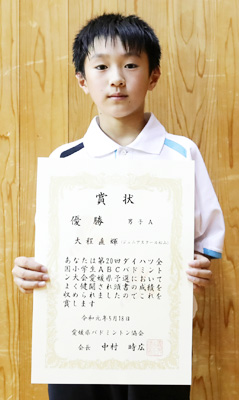 賞状
優勝 男子A
大程直輝
あなたは第20回ダイハツ全
国小学生ABCバドミント
ン大会愛媛県予選において
よく健闘され頭書の成績を
収められましたのでこれを
賞します
令和元年5月18日
愛媛県バドミントン協会
会長 中村時広